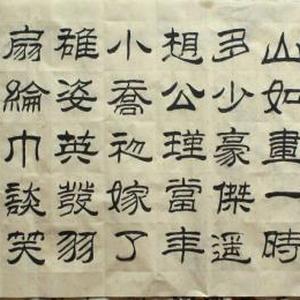 山如畫一時
多少豪傑遥
想公瑾當年
小喬初嫁了
雄姿英發羽
扇綸巾談笑